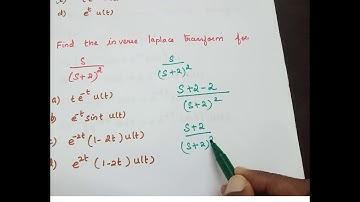 d) e^t u(t)
Find the inverse laplace transform for
S/(S+2)^2
a) t e^-t u(t)
b) e^-t sint u(t)
c) e^-2t (1-2t) u(t)
d) e^2t (1-2t) u(t)
S/(S+2)^2
S+2-2/(S+2)^2
S+2/(S+2)^2